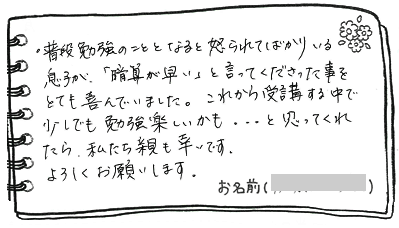 ・普段勉強のこととなると怒られてばかりいる
息子が、「暗算が早い」と言ってくださった事を
とても喜んでいました。これから受講する中で
少しでも勉強楽しいかも...と思ってくれ
たら、私たち親も幸いです。
よろしくお願いします。
お名前( )